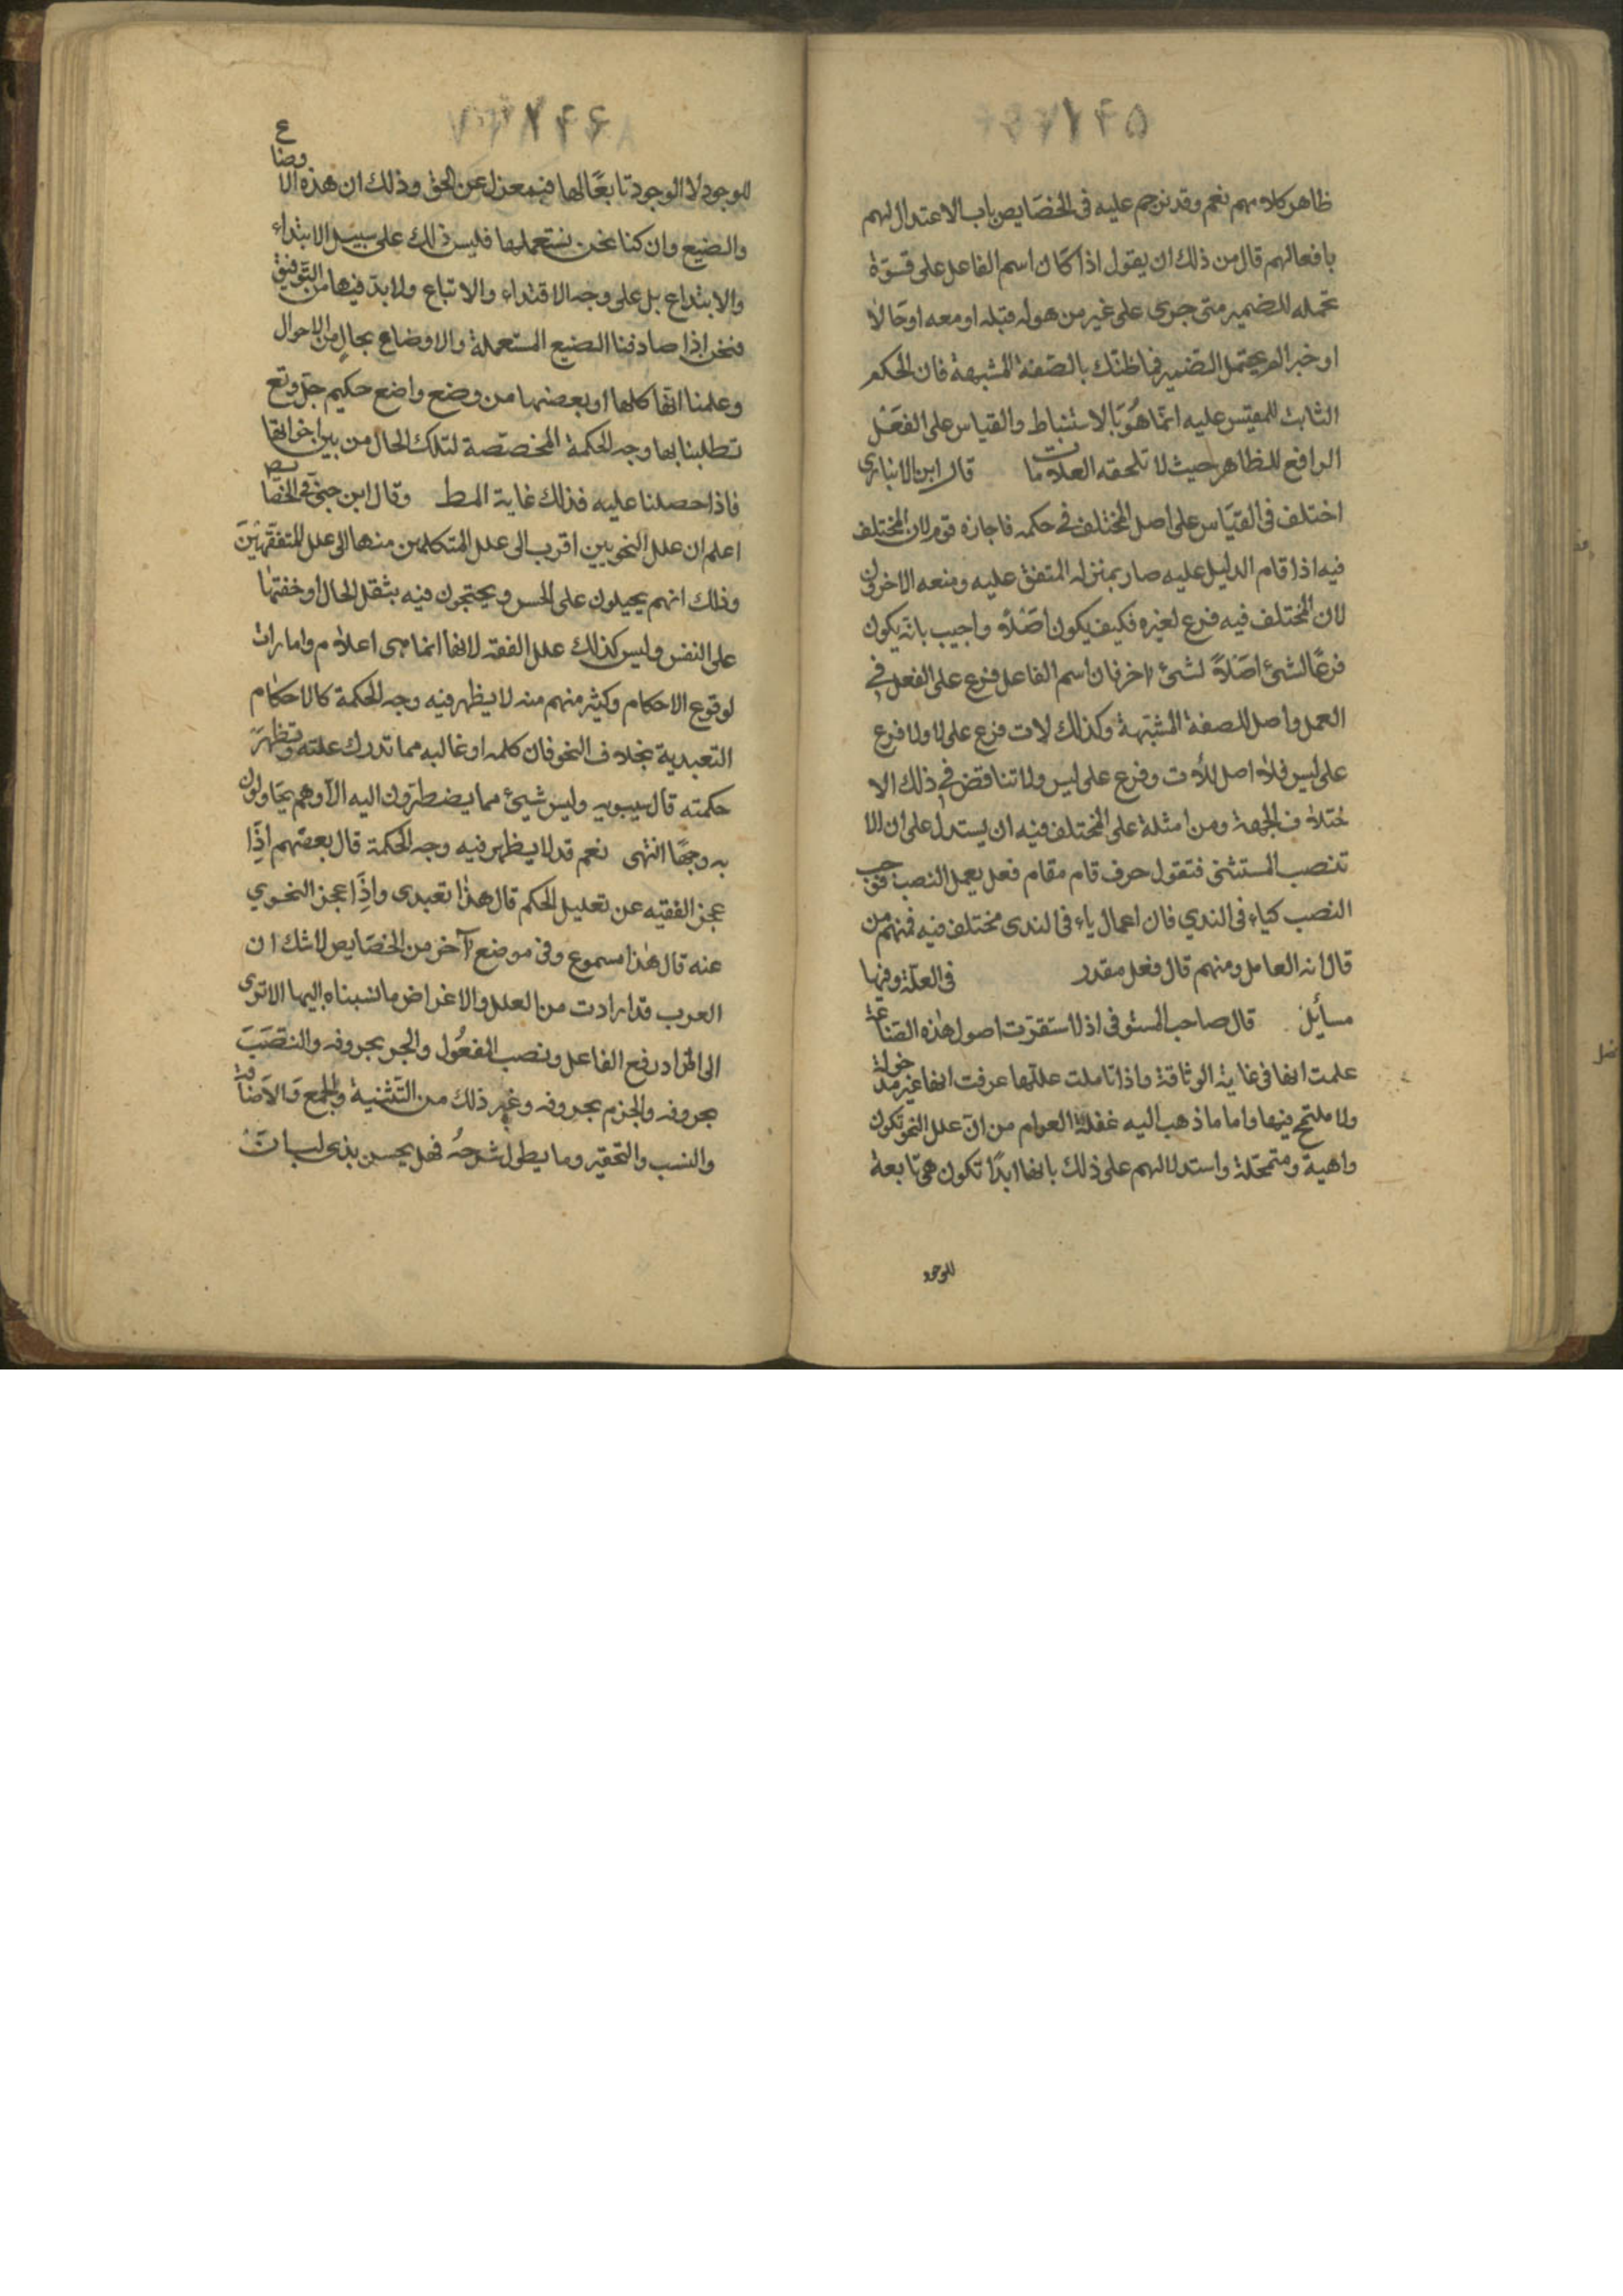 ۱۴۵
ظاهر كلامهم نعم وقد ترجم عليه فى الخصايص باب الاعتدال لهم
بافعالهم قال من ذلك ان يقول اذا كان اسم الفاعل على قوة
تحمله للضمير متى جرى على غير من هوله قبله او معه اوحالا
او خبرا لم يحتمل الضمير فما ظنك بالصفة المشبهة فان الحكم
الثابت للمقيس عليه انما هو بالاستنباط والقياس على الفعل
الرافع للظاهر حيث لا تلحقه العلامات قال ابن الانبارى
اختلف فى القياس على اصل المختلف فى حكمه فاجازه قوم لان المختلف
فيه اذا قام الدليل عليه صار بمنزله المتفق عليه ومنعه الاخرون
لان المختلف فيه فرع لغيره فكيف يكون اصلا واجيب بانه يكون
فرعا لشئ اصلا لشئ اخر فان اسم الفاعل فرع على الفعل فى
العمل واصل للصفة المشبهة وكذلك لات فرع على لا ولا فرع
على ليس فلا اصل للات وفرع على ليس ولا تناقض فى ذلك الا
ختلاف الجهة ومن امثلة على المختلف فيه ان يستدل على ان الا
تنصب المستثنى فتقول حرف قام مقام فعل يعمل النصب فوجب
النصب كياء فى الندي فان اعمال ياء فى الندى مختلف فيه فمنهم من
قال انه العامل ومنهم قال فعل مقدر فى العلة وفيها
مسائل قال صاحب المستوفى اذا استقرت اصول هذه الصناعة
علمت انها فى غاية الوثاقة واذا تاملت عللها عرفت انها غير مدخولة
ولا متمح فيها واما ما ذهب اليه غفلة العوام من ان علل النحو تكون
واهية ومتمحلة واستدلالهم على ذلك بانها ابدا تكون هى تابعة
للوجود
۱۴۶
للوجود لا الوجود تابعا لها فبمعزل عن الحق وذلك ان هذه الاوضاع
والصيغ وان كنا نحن نستعملها فليس ذلك على سبيل الابتداء
والابتداع بل على وجه الاقتداء والاتباع ولا بد فيها من التوفيق
فنحن اذا صادفنا الصيغ المستعملة والاوضاع بحال من الاحوال
وعلمنا انها كلها او بعضها من وضع واضع حكيم جل وتع
تطلبنا بها وجه الحكمة المخصصة لتلك الحال من بين اخواتها
فاذا حصلنا عليه فذلك غاية المط وقال ابن جنى فى الخصايص
اعلم ان علل النحويين اقرب الى علل المتكلمين منها الى علل المتفقهين
وذلك انهم يحيلون على الحس ويحتجون فيه بثقل الحال او خفتها
على النفس وليس كذلك علل الفقه لانها انما هى اعلام وامارات
لوقوع الاحكام وكثير منهم منه لا يظهر فيه وجه الحكمة كالاحكام
التعبدية بخلاف النحو فان كلمه او غالبه مما تدرك علته وتظهر
حكمته قال سيبويه وليس شيئ مما يضطرون اليه الا وهم يحاولون
به وجها انتهى نعم قد لا يظهر فيه وجه الحكمة قال بعضهم اذا
عجز الفقيه عن تعليل الحكم قال هذا تعبدى واذا عجز النحوي
عنه قال هذا مسموع وفى موضع آخر من الخصايص لا شك ان
العرب قد ارادت من العلل والاغراض ما نسبناه اليها الا ترى
الى اطراد رفع الفاعل ونصب المفعول والجر بحروفه والنصب
بحروفه والجزم بحروفه وغير ذلك من التثنية والجمع والاضافة
والنسب والتحقير وما يطول شرحه فهل يحسن بذى لب ان